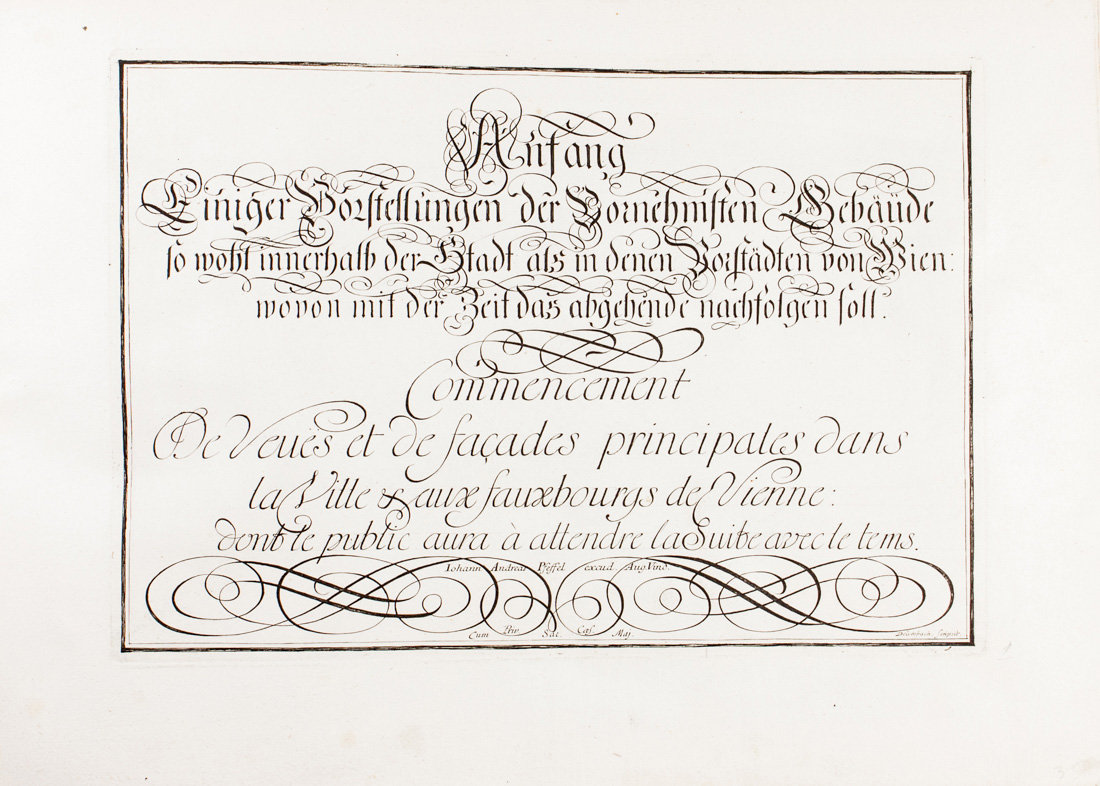 Anfang
Einiger Vorstellungen der Vornehmsten Gebäude
so wohl innerhalb der Stadt als in denen Vorstädten von Wien:
wovon mit der Zeit das abgehende nachfolgen soll.
Commencement
De Veuës et de façades principales dans
la Ville & aux fauxbourgs de Vienne:
dont le public aura à attendre la Suite avec le tems.
Iohann Andreas Pfeffel excud. Aug. Vind.
Cum Priv. Sac. Cæs. Maj.